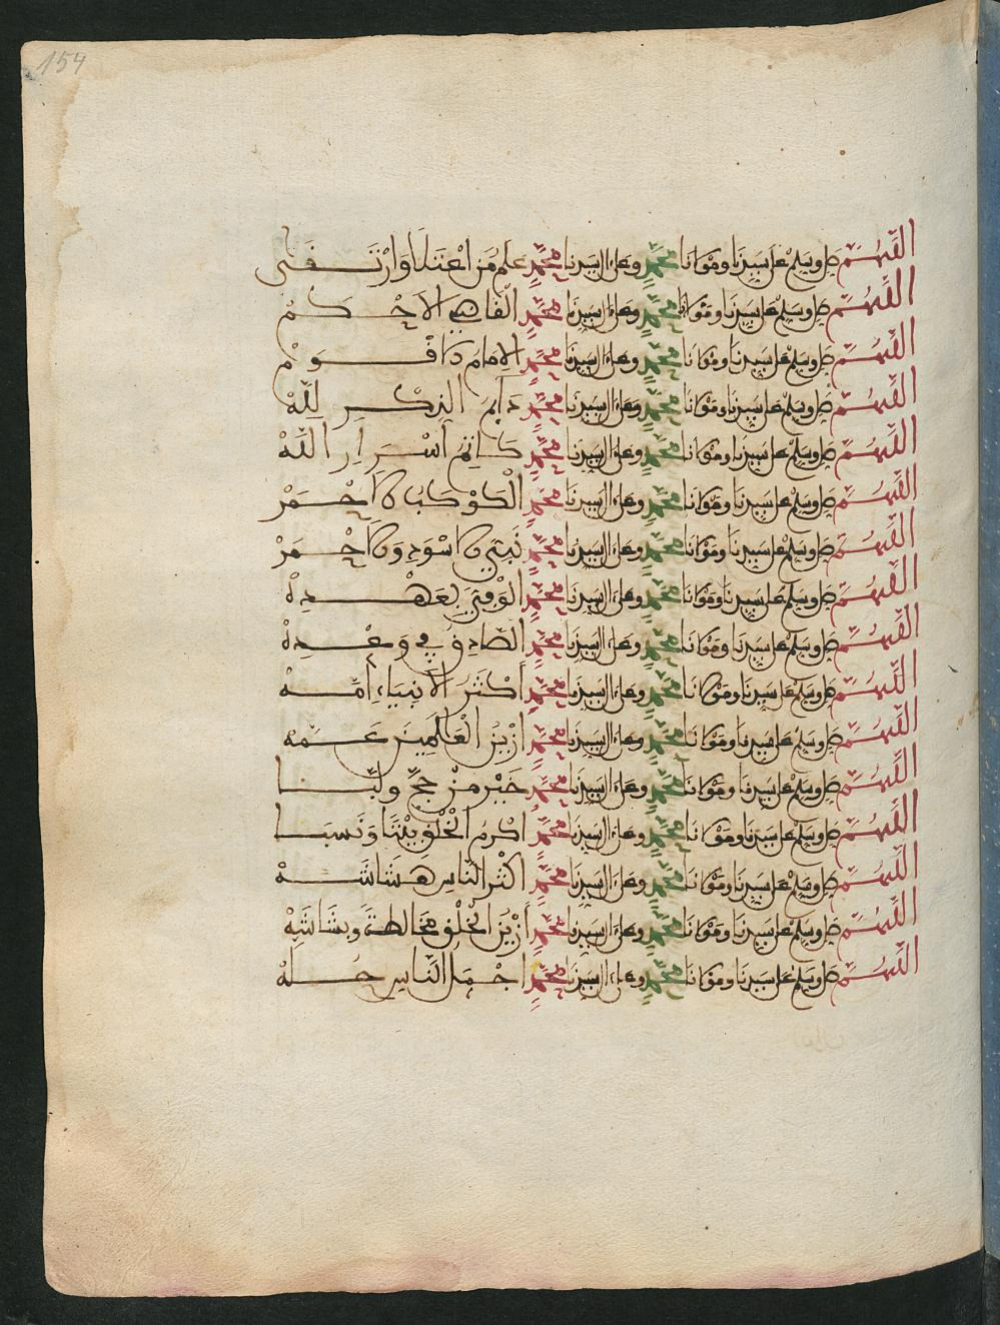 154
اللهم صل وسلم على سيدنا ومولانا محمد وعلى ال سيدنا محمد علم من اعتلا وارتفى
اللهم صل وسلم على سيدنا ومولانا محمد وعلى ال سيدنا محمد الاحكم
اللهم صل وسلم على سيدنا ومولانا محمد وعلى ال سيدنا محمد الامام الاقوم
اللهم صل وسلم على سيدنا ومولانا محمد وعلى ال سيدنا محمد دايم الذكر لله
اللهم صل وسلم على سيدنا ومولانا محمد وعلى ال سيدنا محمد كاتم اسرار الله
اللهم صل وسلم على سيدنا ومولانا محمد وعلى ال سيدنا محمد الكوكب الاحمر
اللهم صل وسلم على سيدنا ومولانا محمد وعلى ال سيدنا محمد نبي الاسود والاحمر
اللهم صل وسلم على سيدنا ومولانا محمد وعلى ال سيدنا محمد الوفي بعهده
اللهم صل وسلم على سيدنا ومولانا محمد وعلى ال سيدنا محمد الصادق في وعده
اللهم صل وسلم على سيدنا ومولانا محمد وعلى ال سيدنا محمد أكثر الأنبياء أمه
اللهم صل وسلم على سيدنا ومولانا محمد وعلى ال سيدنا محمد ازين العالمين عمه
اللهم صل وسلم على سيدنا ومولانا محمد وعلى ال سيدنا محمد خير من حج ولبا
اللهم صل وسلم على سيدنا ومولانا محمد وعلى ال سيدنا محمد اكرم الخلق بيتا ونسبا
اللهم صل وسلم على سيدنا ومولانا محمد وعلى ال سيدنا محمد اكثر الناس هشاشه
اللهم صل وسلم على سيدنا ومولانا محمد وعلى ال سيدنا محمد ازين الخلق مخالطة وبشاشه
اللهم صل وسلم على سيدنا ومولانا محمد وعلى ال سيدنا محمد اجمل الناس حله